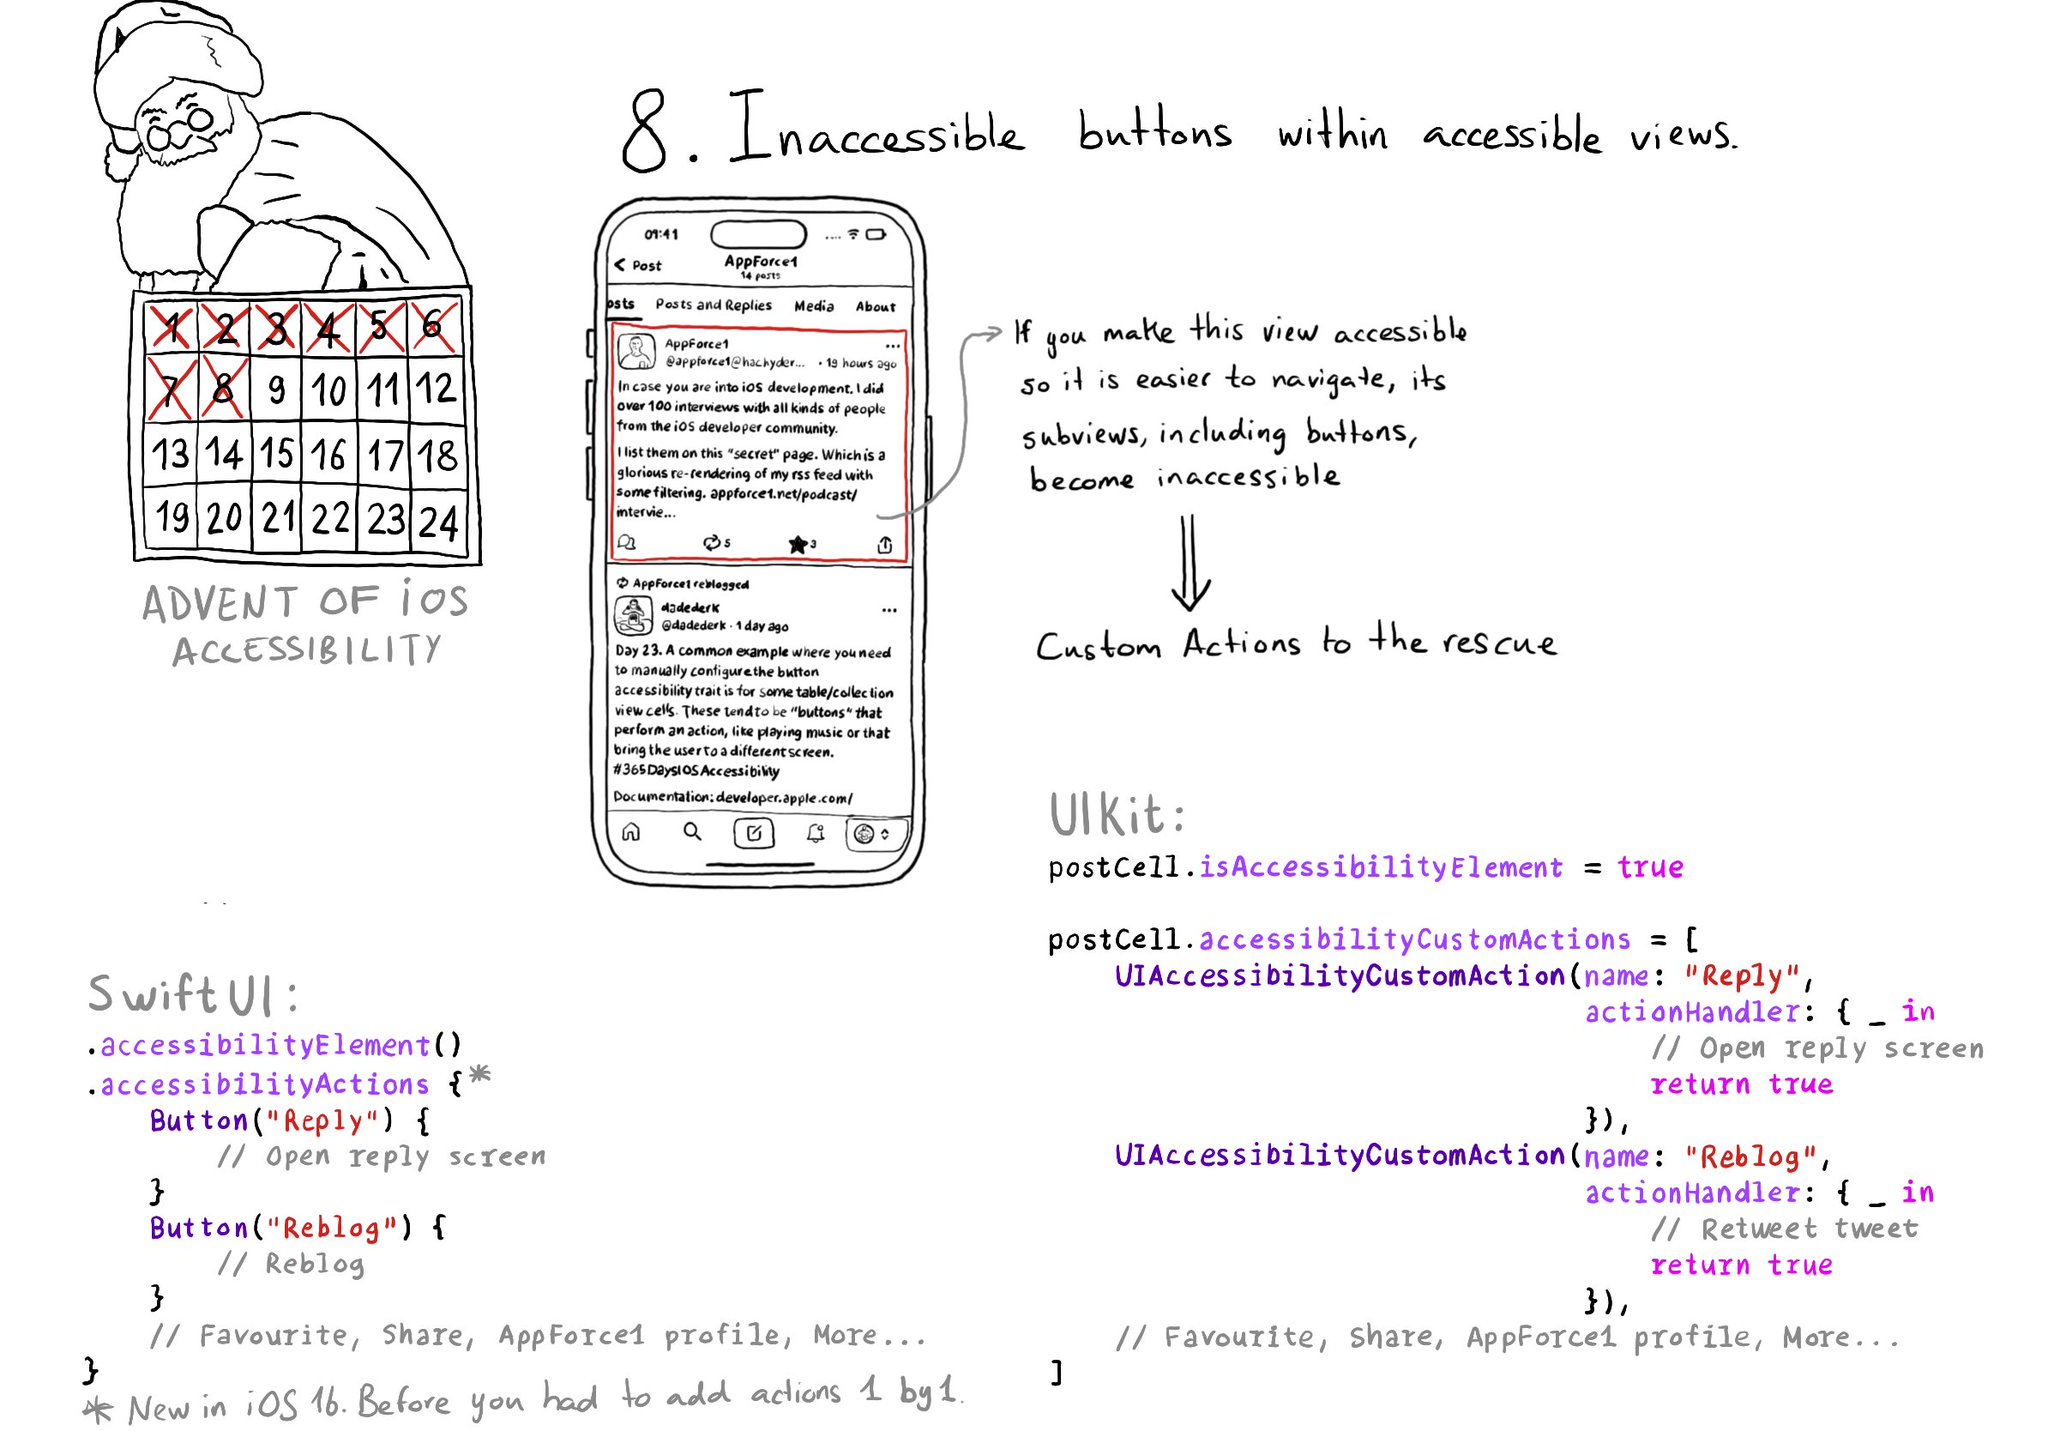 8. Inaccessible buttons within accessible views.
1 2 3 4 5 6
7 8 9 10 11 12
13 14 15 16 17 18
19 20 21 22 23 24
ADVENT OF iOS
ACCESSIBILITY
09:41
< Post
AppForce1
14 posts
osts Posts and Replies Media About
AppForce1 ...
@appforce1@hachyder... · 19 hours ago
In case you are into iOS development. I did
over 100 interviews with all kinds of people
from the iOS developer community.
I list them on this "secret" page. Which is a
glorious re-rendering of my rss feed with
some filtering. appforce1.net/podcast/
intervie...
5 3
AppForce1 reblogged
dadederk ...
@dadederk · 1 day ago
Day 23. A common example where you need
to manually configure the button
accessibility trait is for some table/collection
view cells. These tend to be "buttons" that
perform an action, like playing music or that
bring the user to a different screen.
#365DaysIOSAccessibility
Documentation: developer.apple.com/
If you make this view accessible
so it is easier to navigate, its
subviews, including buttons,
become inaccessible
Custom Actions to the rescue
SwiftUI:
.accessibilityElement()
.accessibilityActions { *
Button("Reply") {
// Open reply screen
}
Button("Reblog") {
// Reblog
}
// Favourite, Share, AppForce1 profile, More...
}
* New in iOS 16. Before you had to add actions 1 by 1.
UIKit:
postCell.isAccessibilityElement = true
postCell.accessibilityCustomActions = [
UIAccessibilityCustomAction(name: "Reply",
actionHandler: { _ in
// Open reply screen
return true
}),
UIAccessibilityCustomAction(name: "Reblog",
actionHandler: { _ in
// Retweet tweet
return true
}),
// Favourite, Share, AppForce1 profile, More...
]